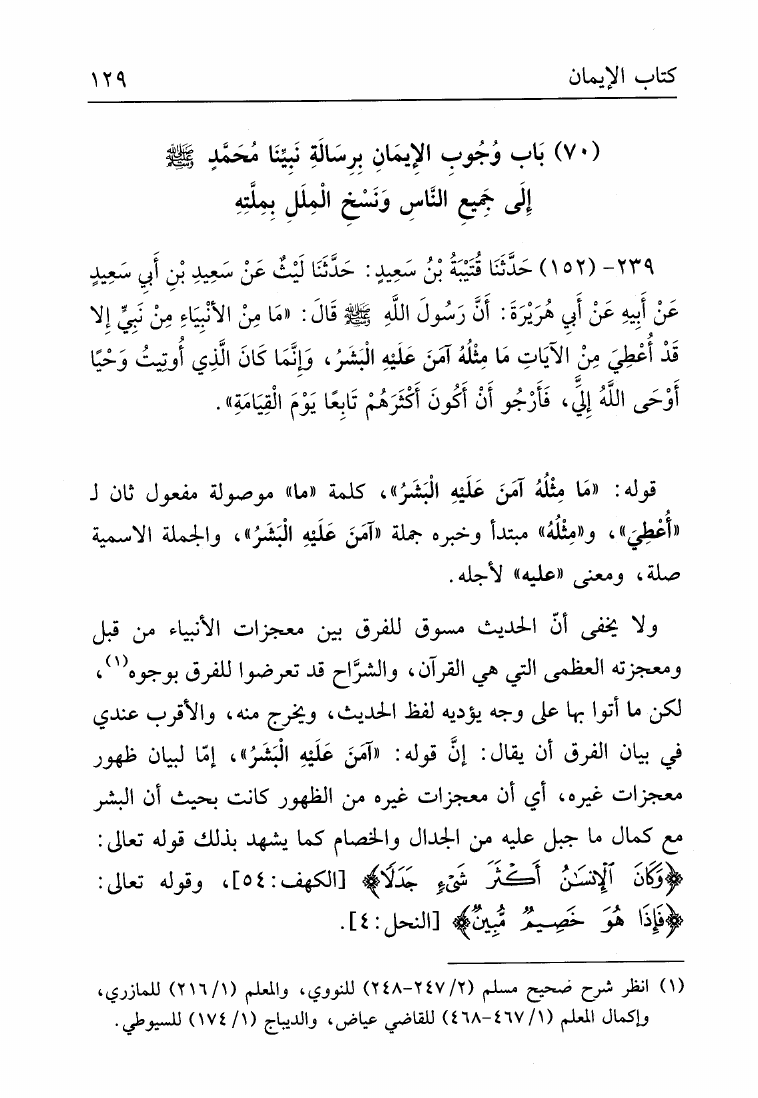 كتاب الإيمان ١٢٩
(٧٠) بَاب وُجُوبِ الإِيمَانِ بِرِسَالَةِ نَبِيِّنَا مُحَمَّدٍ ﷺ
إِلَى جَمِيعِ النَّاسِ وَنَسْخِ الْمِلَلِ بِمِلَّتِهِ
٢٣٩- (١٥٢) حَدَّثَنَا قُتَيْبَةُ بْنُ سَعِيدٍ: حَدَّثَنَا لَيْثٌ عَنْ سَعِيدِ بْنِ أَبِي سَعِيدٍ
عَنْ أَبِيهِ عَنْ أَبِي هُرَيْرَةَ: أَنَّ رَسُولَ اللَّهِ ﷺ قَالَ: «مَا مِنْ الأَنْبِيَاءِ مِنْ نَبِيٍّ إِلا
قَدْ أُعْطِيَ مِنْ الآيَاتِ مَا مِثْلُهُ آمَنَ عَلَيْهِ الْبَشَرُ، وَإِنَّمَا كَانَ الَّذِي أُوتِيتُ وَحْيًا
أَوْحَى اللَّهُ إِلَيَّ، فَأَرْجُو أَنْ أَكُونَ أَكْثَرَهُمْ تَابِعًا يَوْمَ الْقِيَامَةِ».
قوله: «مَا مِثْلُهُ آمَنَ عَلَيْهِ الْبَشَرُ»، كلمة «ما» موصولة مفعول ثان لـ
«أُعْطِيَ»، و«مِثْلُهُ» مبتدأ وخبره جملة «آمَنَ عَلَيْهِ الْبَشَرُ»، والجملة الاسمية
صلة، ومعنى «عليه» لأجله.
ولا يخفى أنّ الحديث مسوق للفرق بين معجزات الأنبياء من قبل
ومعجزته العظمى التي هي القرآن، والشرَّاح قد تعرضوا للفرق بوجوه(١)،
لكن ما أتوا بها على وجه يؤديه لفظ الحديث، ويخرج منه، والأقرب عندي
في بيان الفرق أن يقال: إنَّ قوله: «آمَنَ عَلَيْهِ الْبَشَرُ»، إمّا لبيان ظهور
معجزات غيره، أي أن معجزات غيره من الظهور كانت بحيث أن البشر
مع كمال ما جبل عليه من الجدال والخصام كما يشهد بذلك قوله تعالى:
﴿وَكَانَ ٱلْإِنسَـٰنُ أَكْثَرَ شَىْءٍ جَدَلًا﴾ [الكهف: ٥٤]، وقوله تعالى:
﴿فَإِذَا هُوَ خَصِيمٌ مُّبِينٌ﴾ [النحل: ٤].
(١) انظر شرح صحيح مسلم (٢/ ٢٤٧-٢٤٨) للنووي، والمعلم (١/ ٢١٦) للمازري،
وإكمال المعلم (١/ ٤٦٧-٤٦٨) للقاضي عياض، والديباج (١/ ١٧٤) للسيوطي.